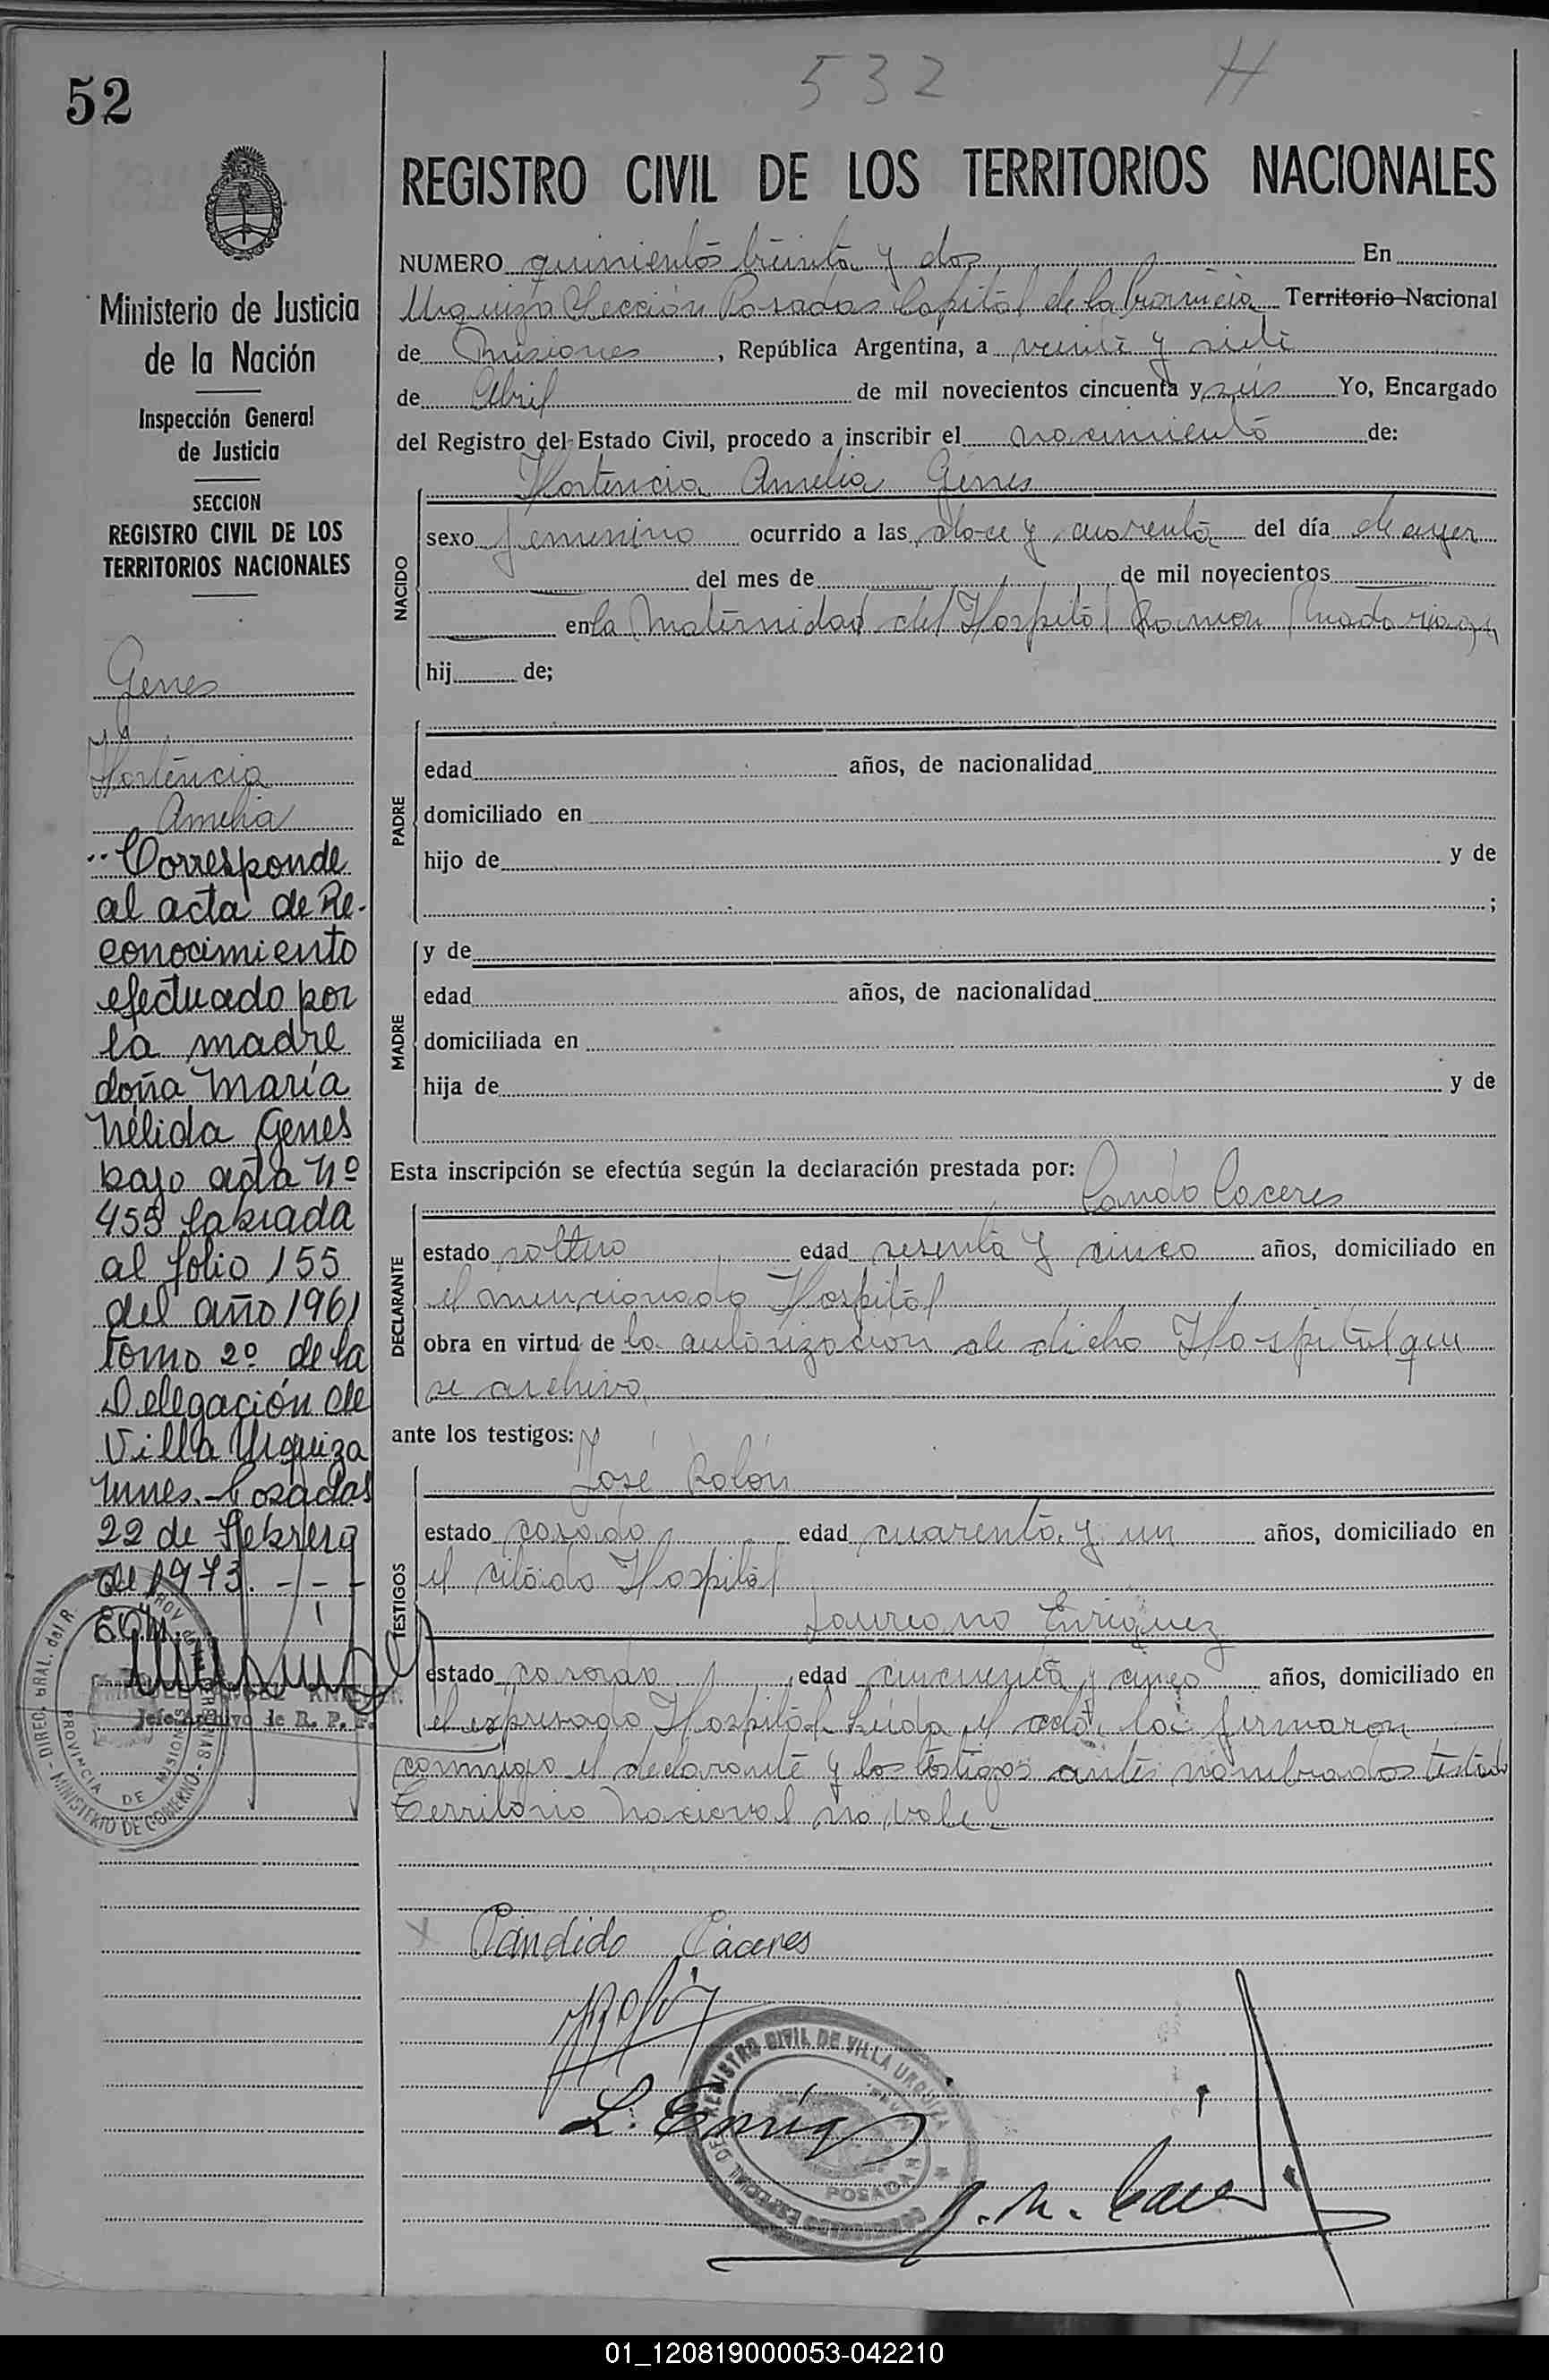 532 H
52
REGISTRO CIVIL DE LOS TERRITORIOS NACIONALES
Ministerio de Justicia
de la Nación
Inspección General
de Justicia
SECCION
REGISTRO CIVIL DE LOS
TERRITORIOS NACIONALES
Genes
Hortencia
Amelia
Corresponde
al acta de Re-
conocimiento
efectuado por
la madre
doña María
Nélida Genes
bajo acta Nº
455 labrada
al folio 155
del año 1961
tomo 2º de la
Delegación de
Villa Urquiza
Mnes. Posadas
22 de Febrero
de 1973. - - -
Jefe Archivo de R. P.
DIREC. GRAL. del R. PROV. de
MINISTERIO DE GOBIERNO
PROVINCIA DE MISIONES
NUMERO quinientos treinta y dos En
Urquiza Sección Posadas Capital de la Provincia Territorio Nacional
de Misiones, República Argentina, a veinte y siete
de Abril de mil novecientos cincuenta y seis Yo, Encargado
del Registro del Estado Civil, procedo a inscribir el nacimiento de:
NACIDO
Hortencia Amelia Genes
sexo femenino ocurrido a las doce y cuarenta del día de ayer
del mes de de mil novecientos
en la Maternidad del Hospital Ramon Madariaga
hij de;
PADRE
edad años, de nacionalidad
domiciliado en
hijo de y de
;
MADRE
y de
edad años, de nacionalidad
domiciliada en
hija de y de
Esta inscripción se efectúa según la declaración prestada por:
Cándido Caceres
DECLARANTE
estado soltero edad sesenta y cinco años, domiciliado en
el mencionado Hospital
obra en virtud de la autorizacion de dicho Hospital que
se archiva
ante los testigos:
José Rolón
TESTIGOS
estado casado edad cuarenta y un años, domiciliado en
el citado Hospital
Laureano Enriquez
estado casado edad cincuenta y cinco años, domiciliado en
el expresado Hospital Leida el acta, la firmaron
conmigo el declarante y los testigos antes nombrados testado
Territorio Nacional no vale
Cándido Cáceres
L. Enriq
REGISTRO CIVIL DE VILLA URQUIZA
POSADAS
01_120819000053-042210